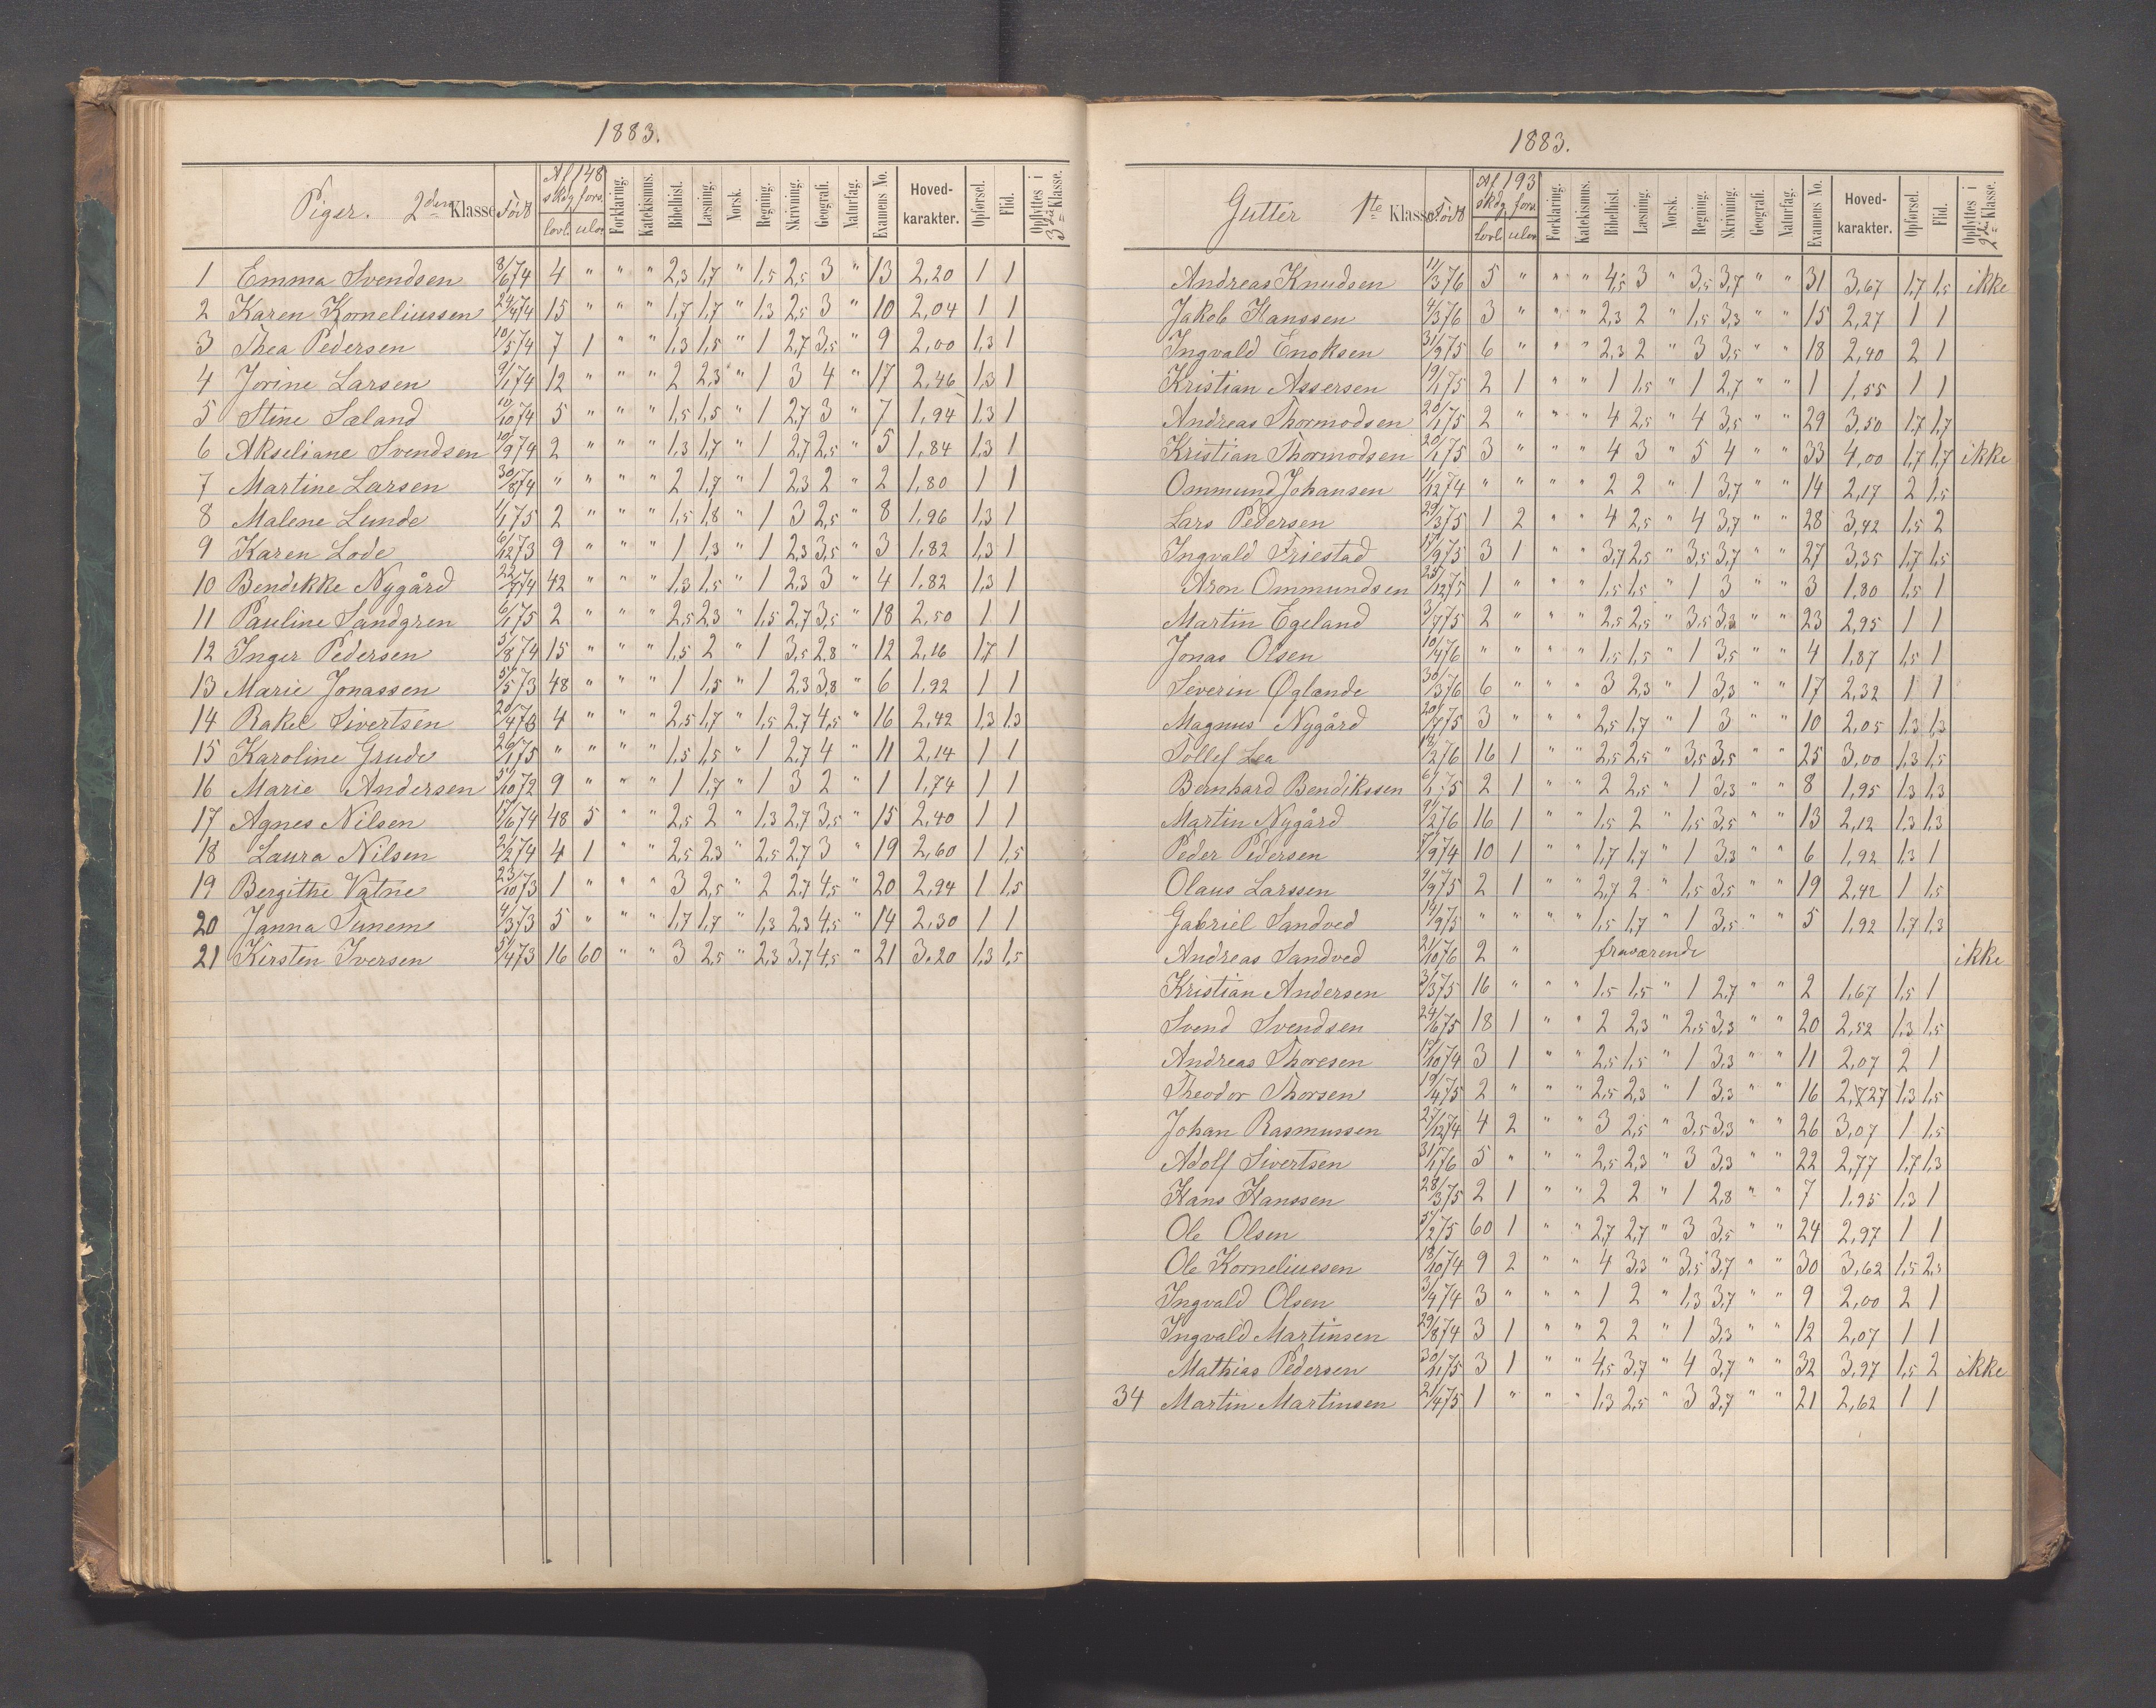 1883.
Piger. 2den Klasse Född Af 148 skdg fors. lovl. ulov. Forklaring. Katekismus. Bibelhist. Læsning. Norsk. Regning. Skrivning. Geografi. Naturfag. Examens No. Hoved-karakter. Opførsel. Flid. Opflyttes i 3die Klasse.
1 Emma Svendsen 8/6 74 4 " " " 2,3 1,7 " 1,5 2,5 3 " 13 2,20 1 1
2 Karen Korneliussen 24/4 74 15 " " " 1,7 1,7 " 1,3 2,5 3 " 10 2,04 1 1
3 Thea Pedersen 10/5 74 7 1 " " 1,3 1,5 " 1 2,7 3,5 " 9 2,00 1,3 1
4 Jorine Larsen 9/1 74 12 " " " 2 2,3 " 1 3 4 " 17 2,46 1,3 1
5 Stine Sæland 10/10 74 5 " " " 1,5 1,5 " 1 2,7 3 " 7 1,94 1,3 1
6 Akseliane Svendsen 10/9 74 2 " " " 1,3 1,7 " 1 2,7 2,5 " 5 1,84 1,3 1
7 Martine Larsen 30/8 74 " " " " 2 1,7 " 1 2,3 2 " 2 1,80 1 1
8 Malene Lunde 1/1 75 2 " " " 1,5 1,8 " 1 3 2,5 " 8 1,96 1,3 1
9 Karen Lode 6/12 73 9 " " " 1 1,3 " 1 2,3 3,5 " 3 1,82 1,3 1
10 Bendikke Nygård 22/7 74 42 " " " 1,3 1,5 " 1 2,3 3 " 4 1,82 1,3 1
11 Pauline Sandgren 6/1 75 2 " " " 2,5 2,3 " 1,5 2,7 3,5 " 18 2,50 1 1
12 Inger Pedersen 5/8 74 15 " " " 1,5 2 " 1 3,5 2,8 " 12 2,16 1,7 1
13 Marie Jonassen 5/5 73 48 " " " 1 1,5 " 1 2,3 3,8 " 6 1,92 1 1
14 Rakel Sivertsen 20/4 76 4 " " " 2,5 1,7 " 1,5 2,7 4,5 " 16 2,42 1,3 1,3
15 Karoline Grude 26/1 75 " " " " 1,5 1,5 " 1 2,7 4 " 11 2,14 1 1
16 Marie Andersen 31/10 72 9 " " " 1 1,7 " 1 3 2 " 1 1,74 1 1
17 Agnes Nilsen 17/6 74 48 5 " " 2,5 2 " 1,3 2,7 3,5 " 15 2,40 1 1
18 Laura Nilsen 2/2 74 4 1 " " 2,5 2,3 " 2,5 2,7 3 " 19 2,60 1 1,5
19 Bergithe Vatne 23/10 73 1 " " " 3 2,5 " 2 2,7 4,5 " 20 2,94 1 1,5
20 Janna Tunem 4/3 73 5 " " " 1,7 1,7 " 1,3 2,3 4,5 " 14 2,30 1 1
21 Kirsten Iversen 5/4 73 16 60 " " 3 2,5 " 2,3 3,7 4,5 " 21 3,20 1,3 1,5
1883.
Gutter 1ste Klasse Född Af 193 skdg fors. lovl. ulov. Forklaring. Katekismus. Bibelhist. Læsning. Norsk. Regning. Skrivning. Geografi. Naturfag. Examens No. Hoved-karakter. Opførsel. Flid. Opflyttes i 2den Klasse.
Andreas Knudsen 11/3 76 5 " " " 4,5 3 " 3,5 3,7 " " 31 3,67 1,7 1,5 ikke
Jakob Hanssen 4/3 76 3 " " " 2,3 2 " 1,5 3,3 " " 15 2,27 1 1
Ingvald Enoksen 31/9 75 6 " " " 2,3 2 " 3 3,5 " " 18 2,40 2 1
Kristian Assersen 19/1 75 2 1 " " 1 1,5 " 1 2,7 " " 1 1,55 1 1
Andreas Thormodsen 20/1 75 2 " " " 4 2,5 " 4 3,5 " " 29 3,50 1,7 1,7
Kristian Thormodsen 20/1 75 3 " " " 4 3 " 5 4 " " 33 4,00 1,7 1,7 ikke
Ommund Johansen 11/12 74 " " " " 2 2 " 1 3,7 " " 14 2,17 2 1,5
Lars Pedersen 29/3 75 1 2 " " 4 2,5 " 4 3,7 " " 28 3,42 1,5 2
Ingvald Friestad 17/9 75 3 1 " " 3,7 2,5 " 3,5 3,7 " " 27 3,35 1,7 1,5
Aron Ommundsen 25/12 75 1 " " " 1,5 1,5 " 1 3 " " 3 1,80 1,5 1
Martin Egeland 3/7 75 2 " " " 2,5 2,5 " 3,5 3,3 " " 23 2,95 1 1
Jonas Olsen 10/4 76 " " " " 1,5 1,5 " 1 3,5 " " 4 1,87 1,5 1
Severin Øglande 30/3 76 6 " " " 3 2,3 " 1 3,3 " " 17 2,32 1 1
Magnus Nygård 20/7 75 3 " " " 2,5 1,7 " 1 3 " " 10 2,05 1,3 1,3
Tollef Lea 12/2 76 16 1 " " 2,5 2,5 " 3,5 3,5 " " 25 3,00 1,3 1,5
Bernhard Bendikssen 6/1 75 2 1 " " 2 2,5 " 1 3,3 " " 8 1,95 1,3 1,3
Martin Nygård 9/2 76 16 1 " " 1,5 2 " 1,5 3,5 " " 13 2,12 1,3 1,3
Peder Pedersen 7/9 74 10 1 " " 1,7 1,7 " 1 3,3 " " 6 1,92 1,3 1
Olaus Larssen 9/9 75 2 1 " " 2,7 2 " 1,5 3,5 " " 19 2,42 1 1,5
Gabriel Sandved 14/9 75 " " " " 1,5 1,7 " 1 3,5 " " 5 1,92 1,7 1,3
Andreas Sandved 21/10 76 2 " fraværende ikke
Kristian Andersen 3/3 75 16 " " " 1,5 1,5 " 1 2,7 " " 2 1,67 1,5 1
Svend Svendsen 24/6 75 18 1 " " 2 2,3 " 2,5 3,3 " " 20 2,52 1,3 1,5
Andreas Thoresen 17/10 74 3 1 " " 2,5 1,5 " 1 3,3 " " 11 2,07 2 1
Theodor Thorsen 19/4 75 2 " " " 2,5 2,3 " 1 3,3 " " 16 2,27 1,3 1,5
Johan Rasmussen 27/12 74 4 2 " " 3 2,5 " 3,5 3,3 " " 26 3,07 1 1,5
Adolf Sivertsen 31/1 76 5 " " " 2,5 2,3 " 3 3,3 " " 22 2,77 1,7 1,3
Hans Hanssen 28/3 75 2 1 " " 2 2 " 1 2,8 " " 7 1,95 1,3 1
Ole Olsen 5/2 75 60 1 " " 2,7 2,7 " 3 3,5 " " 24 2,97 1 1
Ole Korneliussen 18/10 74 9 2 " " 4 3,3 " 3,5 3,7 " " 30 3,62 1,5 2,3
Ingvald Olsen 3/9 74 3 " " " 1 2 " 1,3 3,7 " " 9 2,00 2 1
Ingvald Martinsen 29/8 74 3 1 " " 2 2 " 1 3,3 " " 12 2,07 1 1
Mathias Pedersen 30/11 75 3 1 " " 4,5 3,7 " 4 3,7 " " 32 3,97 1,5 2 ikke
34 Martin Martinsen 21/4 75 1 " " " 1,3 2,5 " 3 3,7 " " 21 2,62 1 1